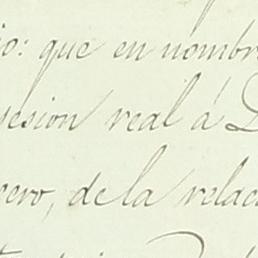 io: que en nombr
sesion real á D
rero, de la relac